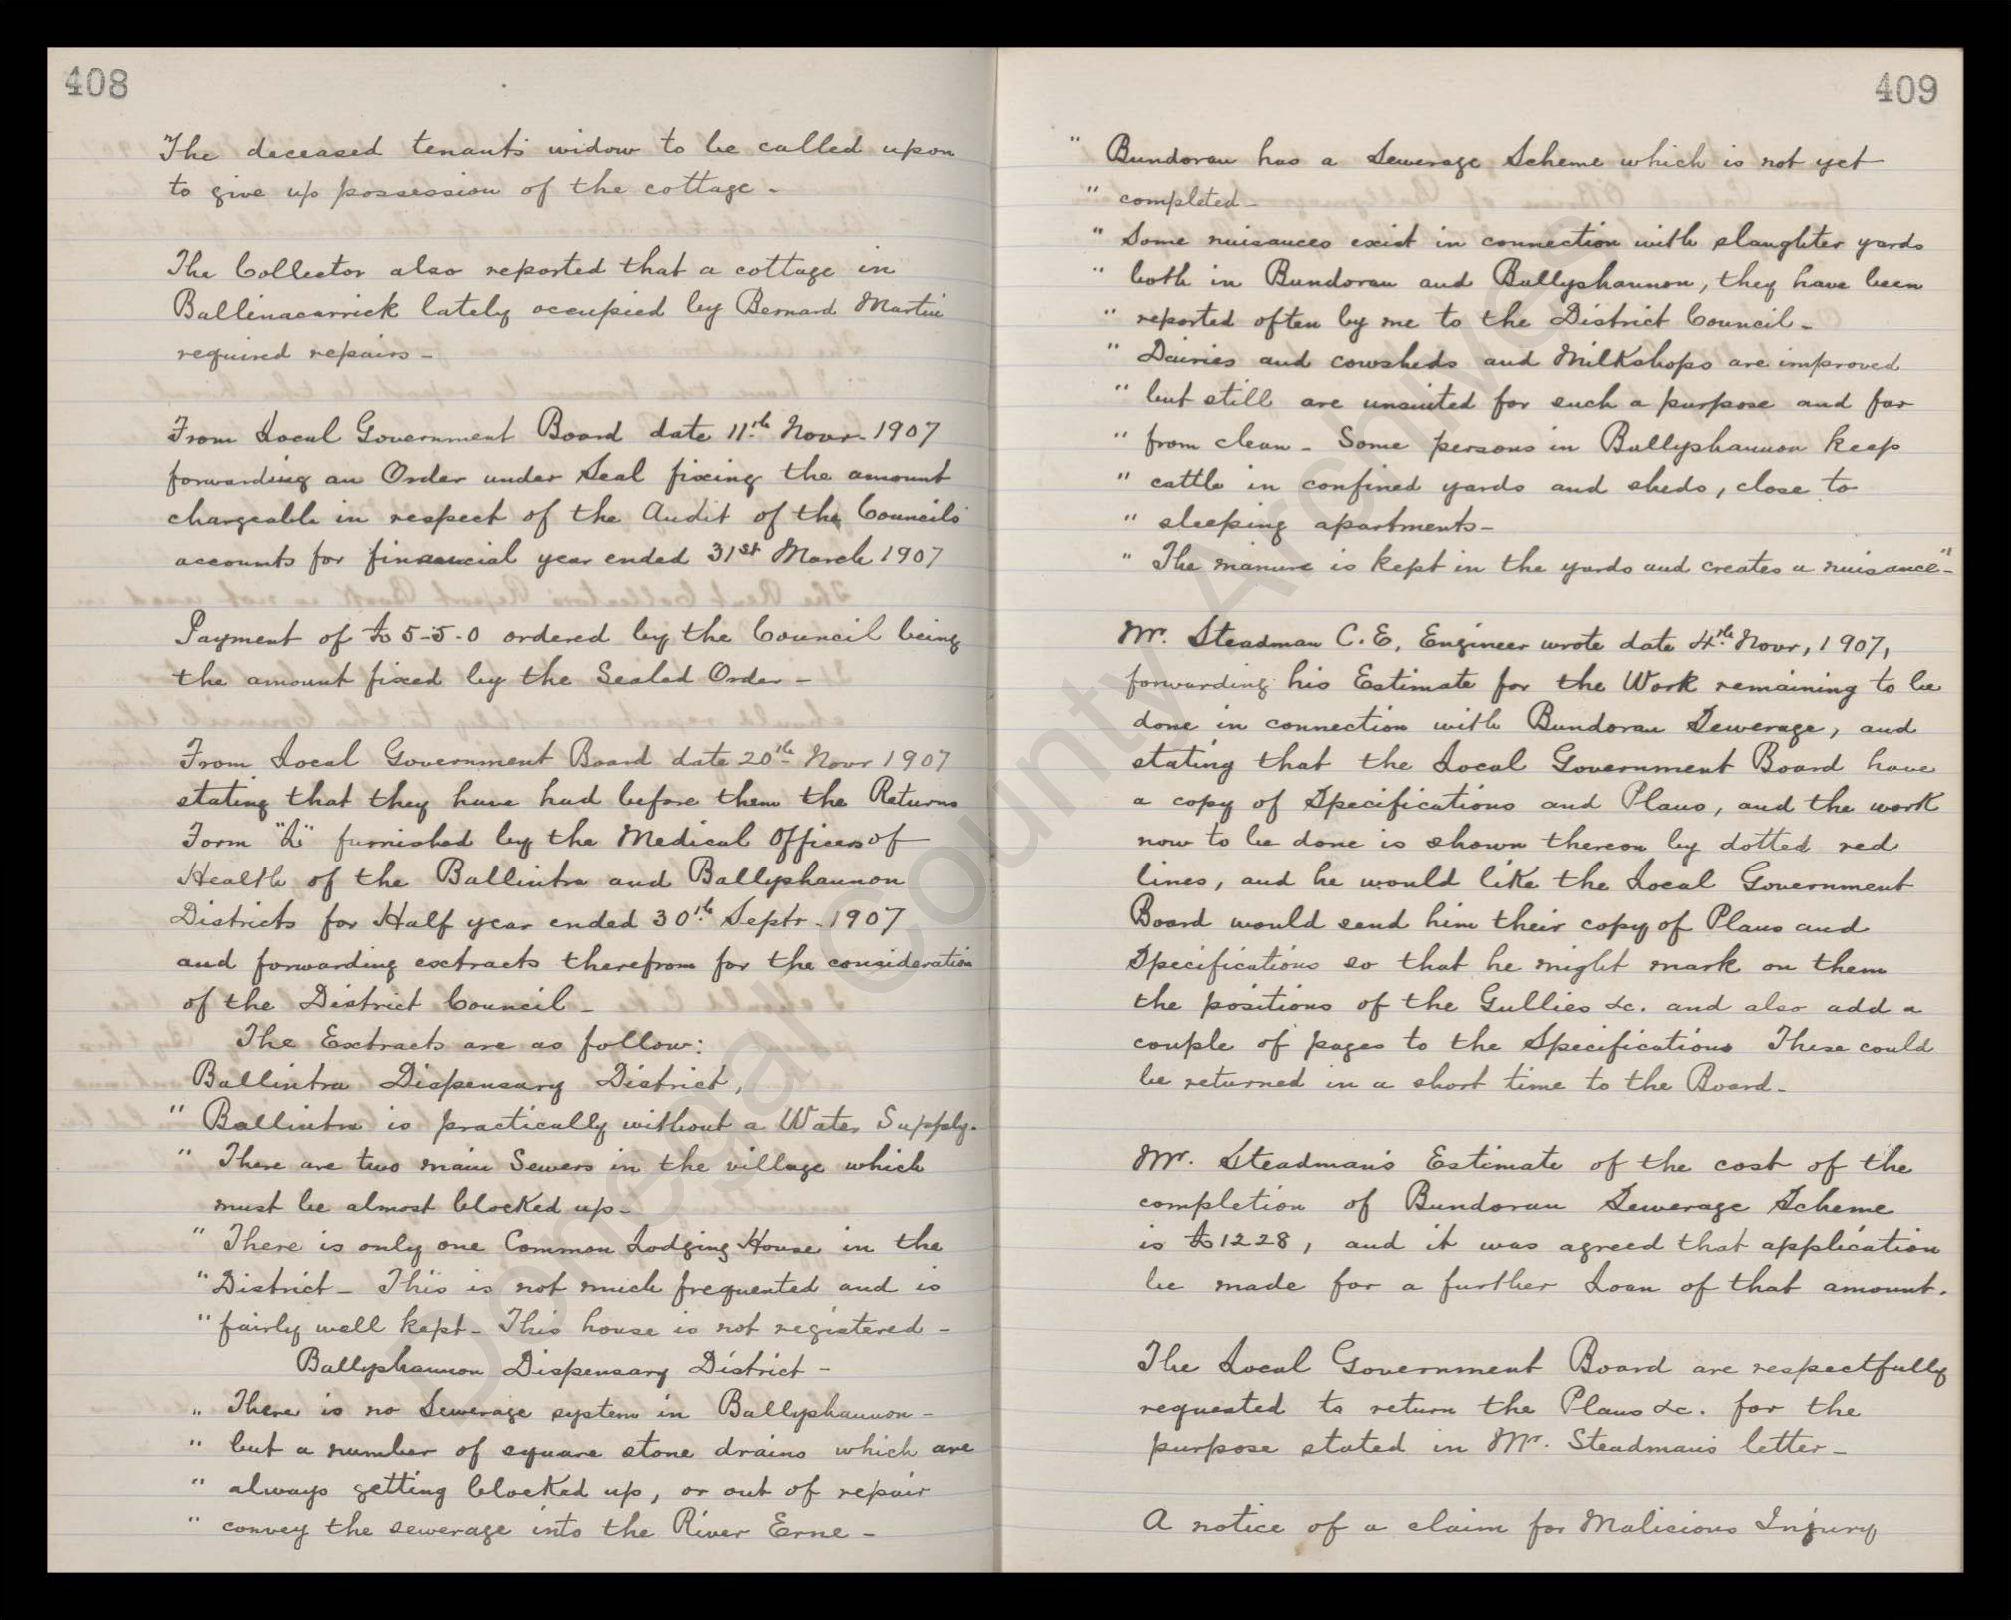 408
The deceased tenant's widow to be called upon
to give up possession of the cottage -
The Collector also reported that a cottage in
Ballinacarrick lately occupied by Bernard Martin
required repairs -
From Local Government Board date 11th Novr. 1907
forwarding an Order under Seal fixing the amount
chargeable in respect of the Audit of the Councils
accounts for financial year ended 31st March 1907
Payment of £5-5-0 ordered by the Council being
the amount fixed by the Sealed Order -
From Local Government Board date 20th Novr 1907
stating that they have had before them the Returns
Form "L" furnished by the Medical Officers of
Health of the Ballintra and Ballyshannon
Districts for Half year ended 30th Septr. 1907
and forwarding extracts therefrom for the consideration
of the District Council -
The Extracts are as follow:
Ballintra Dispensary District,
" Ballintra is practically without a Water Supply.
" There are two main Sewers in the village which
must be almost blocked up -
" There is only one Common Lodging House in the
" District - This is not much frequented and is
" fairly well kept - This house is not registered -
Ballyshannon Dispensary District -
" There is no Sewerage system in Ballyshannon -
" but a number of square stone drains which are
" always getting blocked up, or out of repair
" convey the sewerage into the River Erne -
409
" Bundoran has a Sewerage Scheme which is not yet
" completed -
" Some nuisances exist in connection with slaughter yards
" both in Bundoran and Ballyshannon, they have been
" reported often by me to the District Council -
" Dairies and cowsheds and Milkshops are improved
" but still are unsuited for such a purpose and far
" from clean - Some persons in Ballyshannon keep
" cattle in confined yards and sheds, close to
" sleeping apartments -
" The manure is kept in the yards and creates a nuisance" -
Mr. Steadman C.E, Engineer wrote date 4th Novr, 1907,
forwarding his Estimate for the Work remaining to be
done in connection with Bundoran Sewerage, and
stating that the Local Government Board have
a copy of Specifications and Plans, and the work
now to be done is shown thereon by dotted red
lines, and he would like the Local Government
Board would send him their copy of Plans and
Specifications so that he might mark on them
the positions of the Gullies &c. and also add a
couple of pages to the Specifications These could
be returned in a short time to the Board -
Mr. Steadman's Estimate of the cost of the
completion of Bundoran Sewerage Scheme
is £1228, and it was agreed that application
be made for a further Loan of that amount.
The Local Government Board are respectfully
requested to return the Plans &c. for the
purpose stated in Mr. Steadman's letter -
A notice of a claim for Malicious Injury
Donegal County Archives